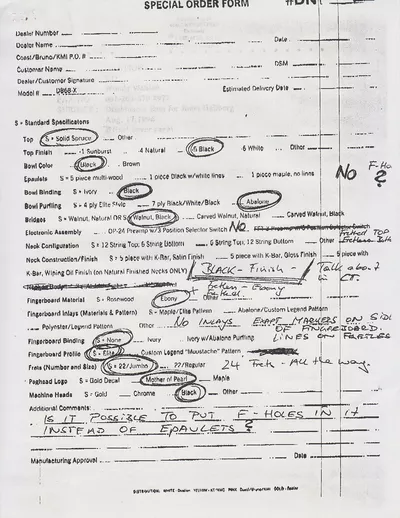 SPECIAL ORDER FORM #DN
Dealer Number
Dealer Name Date
Coast/Bruno/KMI P.O. #
Customer Name DSM
Dealer/Customer Signature
Model # DB68-X Estimated Delivery Date
S = Standard Specifications
Top S = Solid Spruce Other
Top Finish -1 Sunburst -4 Natural -5 Black -6 White Other
Bowl Color Black Brown
Epaulets S = 5 piece multi-wood 1 piece Black w/white lines 1 piece maple, no lines NO F-Ho. ?
Bowl Binding S = Ivory Black
Bowl Purfling S = 4 ply Elite Style 7 ply Black/White/Black Abalone
Bridges S = Walnut, Natural OR S Walnut, Black Carved Walnut, Natural Carved Walnut, Black
Electronic Assembly OP-24 Preamp w/3 Position Selector Switch NO
Fretted TOP
Neck Configuration S = 12 String Top; 6 String Bottom 6 String Top; 12 String Bottom Other
Neck Construction/Finish S = 5 piece with K-Bar, Satin Finish 5 piece with K-Bar, Gloss Finish 5 piece with
K-Bar, Wiping Oil Finish (on Natural Finished Necks ONLY) BLACK - Finish - Talk about
in CT.
Fingerboard Material S = Rosewood Ebony + Ebony
Fingerboard Inlays (Materials & Pattern) S = Maple/Elite Pattern Abalone/Custom Legend Pattern
Polyester/Legend Pattern Other NO INLAYS EXEPT MARKERS ON SID
OF FINGERBOARD.
Fingerboard Binding S = None Ivory Ivory w/Abalone Purfling LINES ON FRETLES
Fingerboard Profile S = Elite Custom Legend "Moustache" Pattern
Frets (Number and Size) S = 22/Jumbo 22/Regular 24 Fret. All the way.
Peghead Logo S = Gold Decal Mother of Pearl Maple
Machine Heads S = Gold Chrome Black Other
Additional Comments:
IS IT POSSIBLE TO PUT F-HOLES IN it
INSTEAD OF EPAULETS?
Manufacturing Approval Date